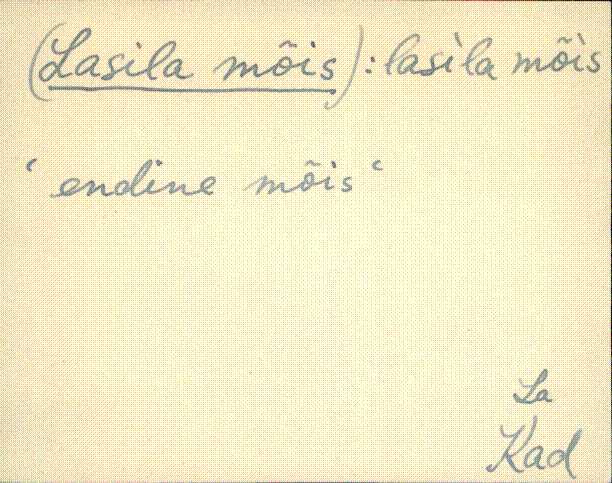 (Lasila mõis): lasìla mõìs
‘endine mõis‘
La
Kad